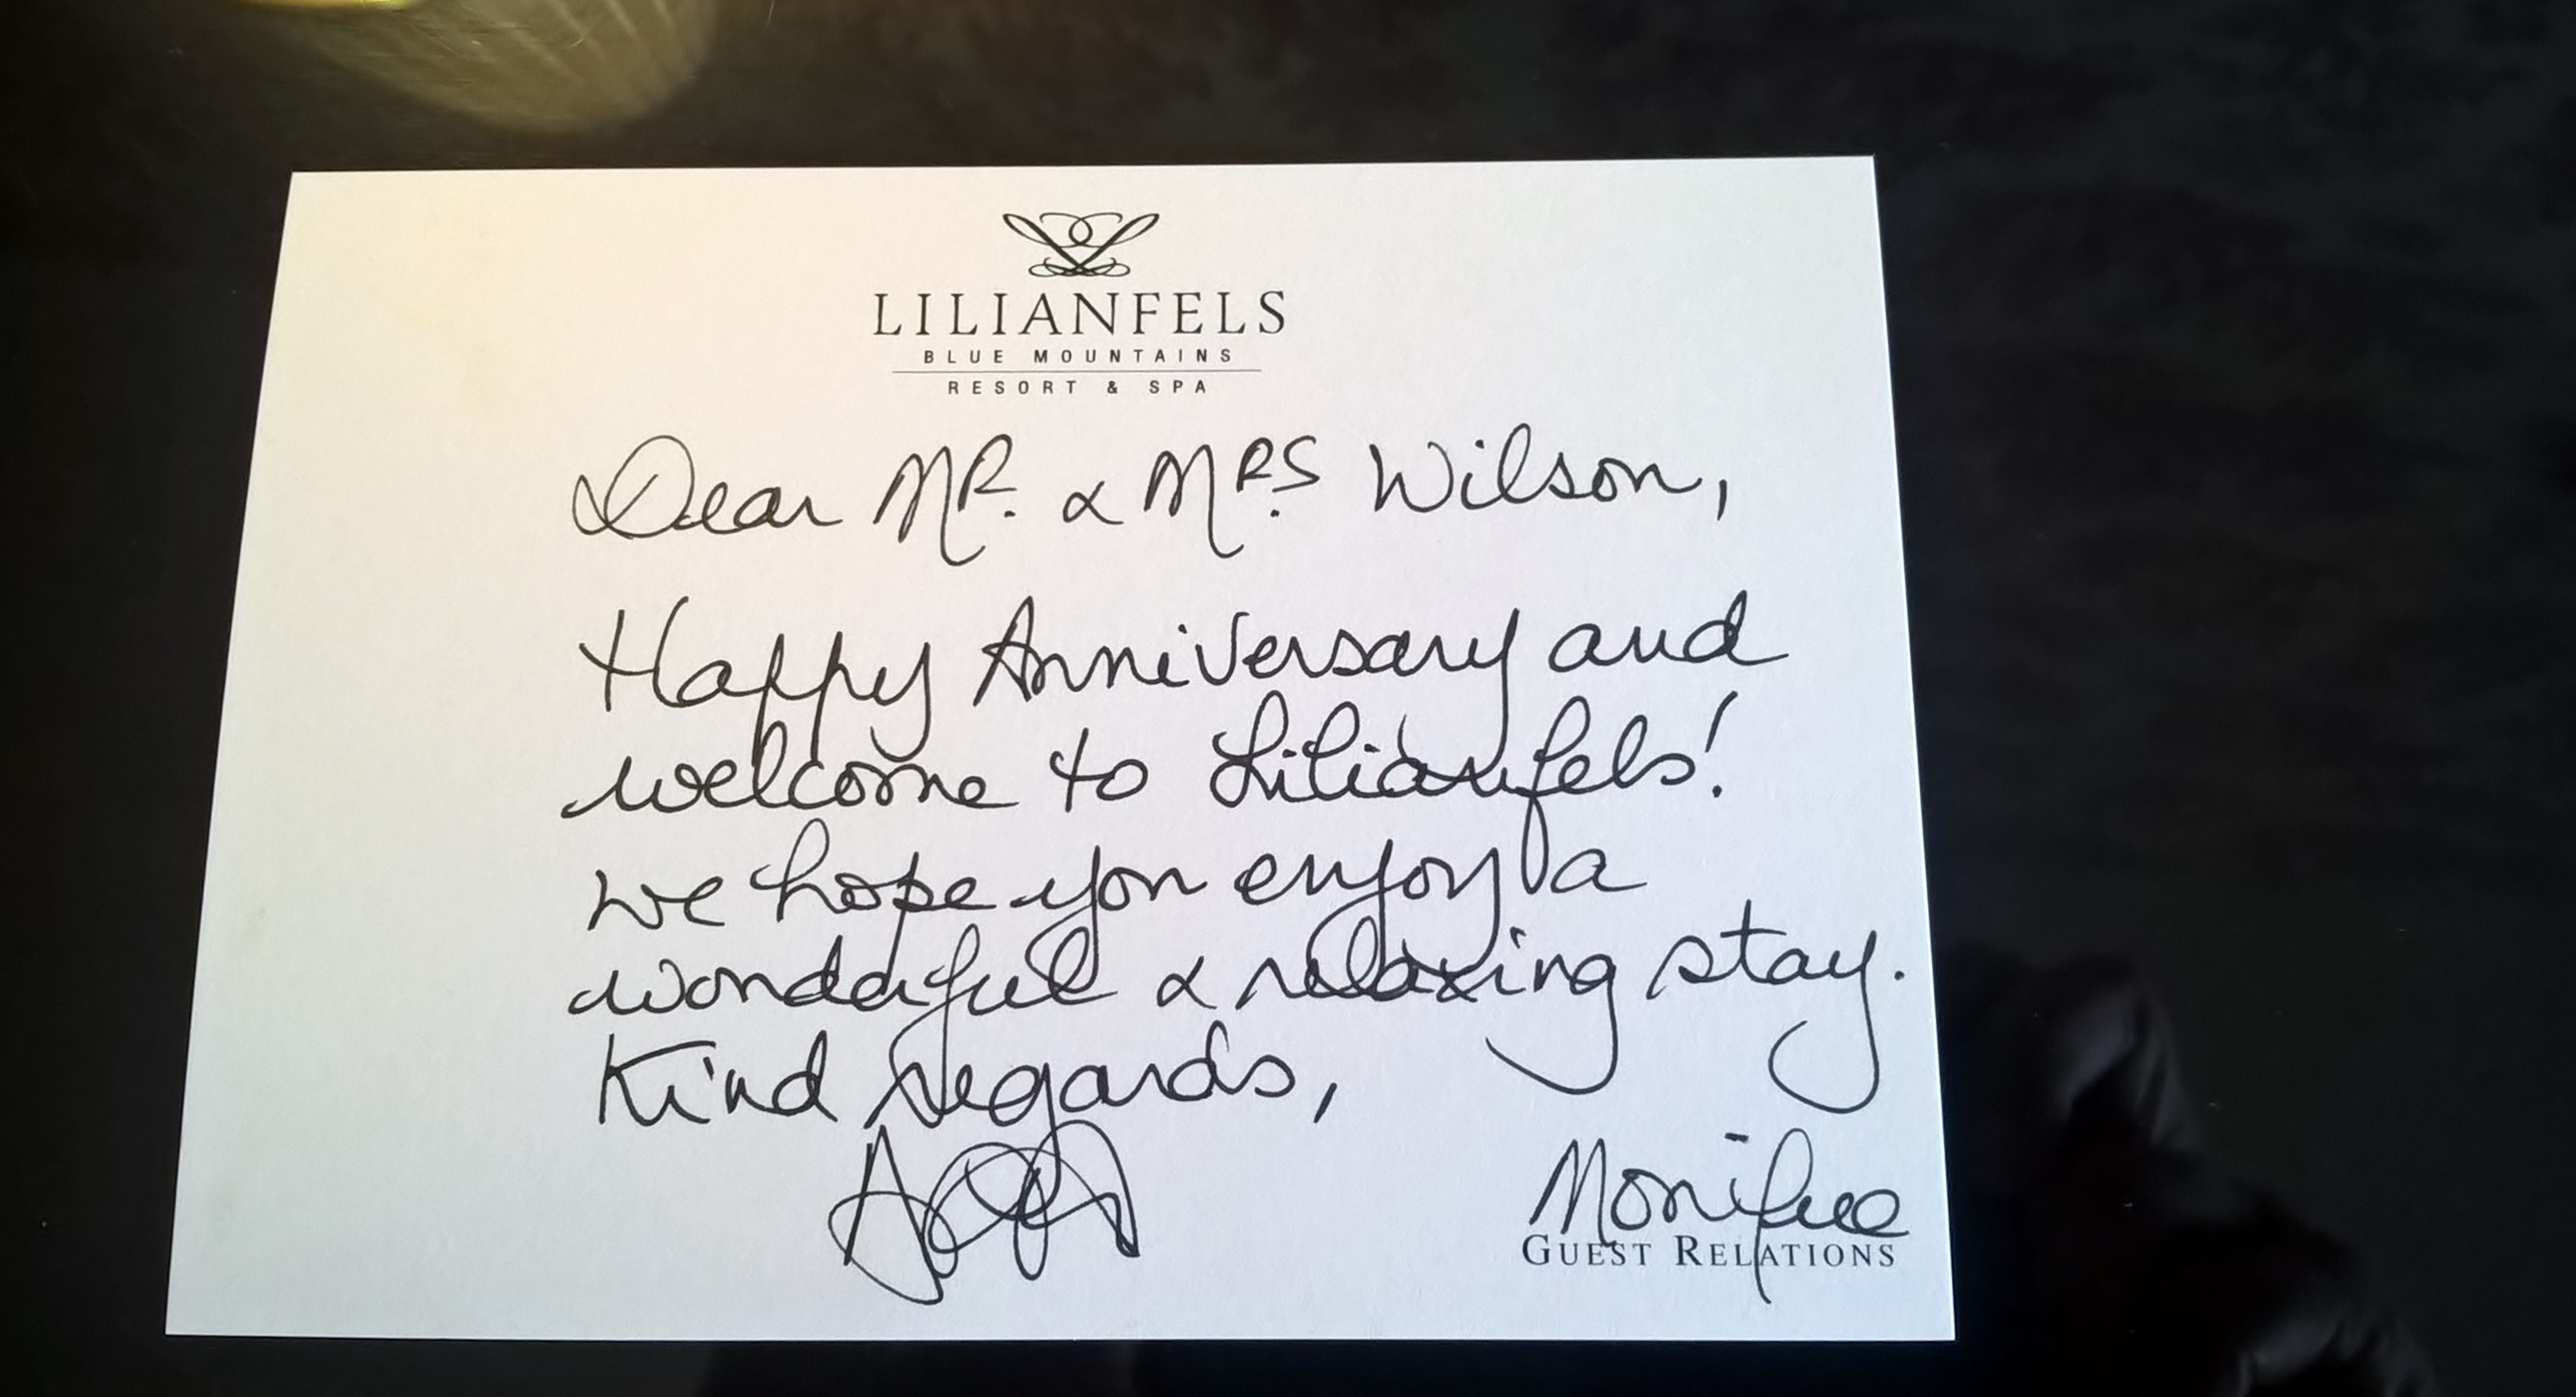 LILIANFELS
BLUE MOUNTAINS
RESORT & SPA
Dear MR. & MRS. Wilson,
Happy Anniversary and
welcome to Lilianfels!
We hope you enjoy a
wonderful & relaxing stay.
Kind Regards,
GUEST RELATIONS